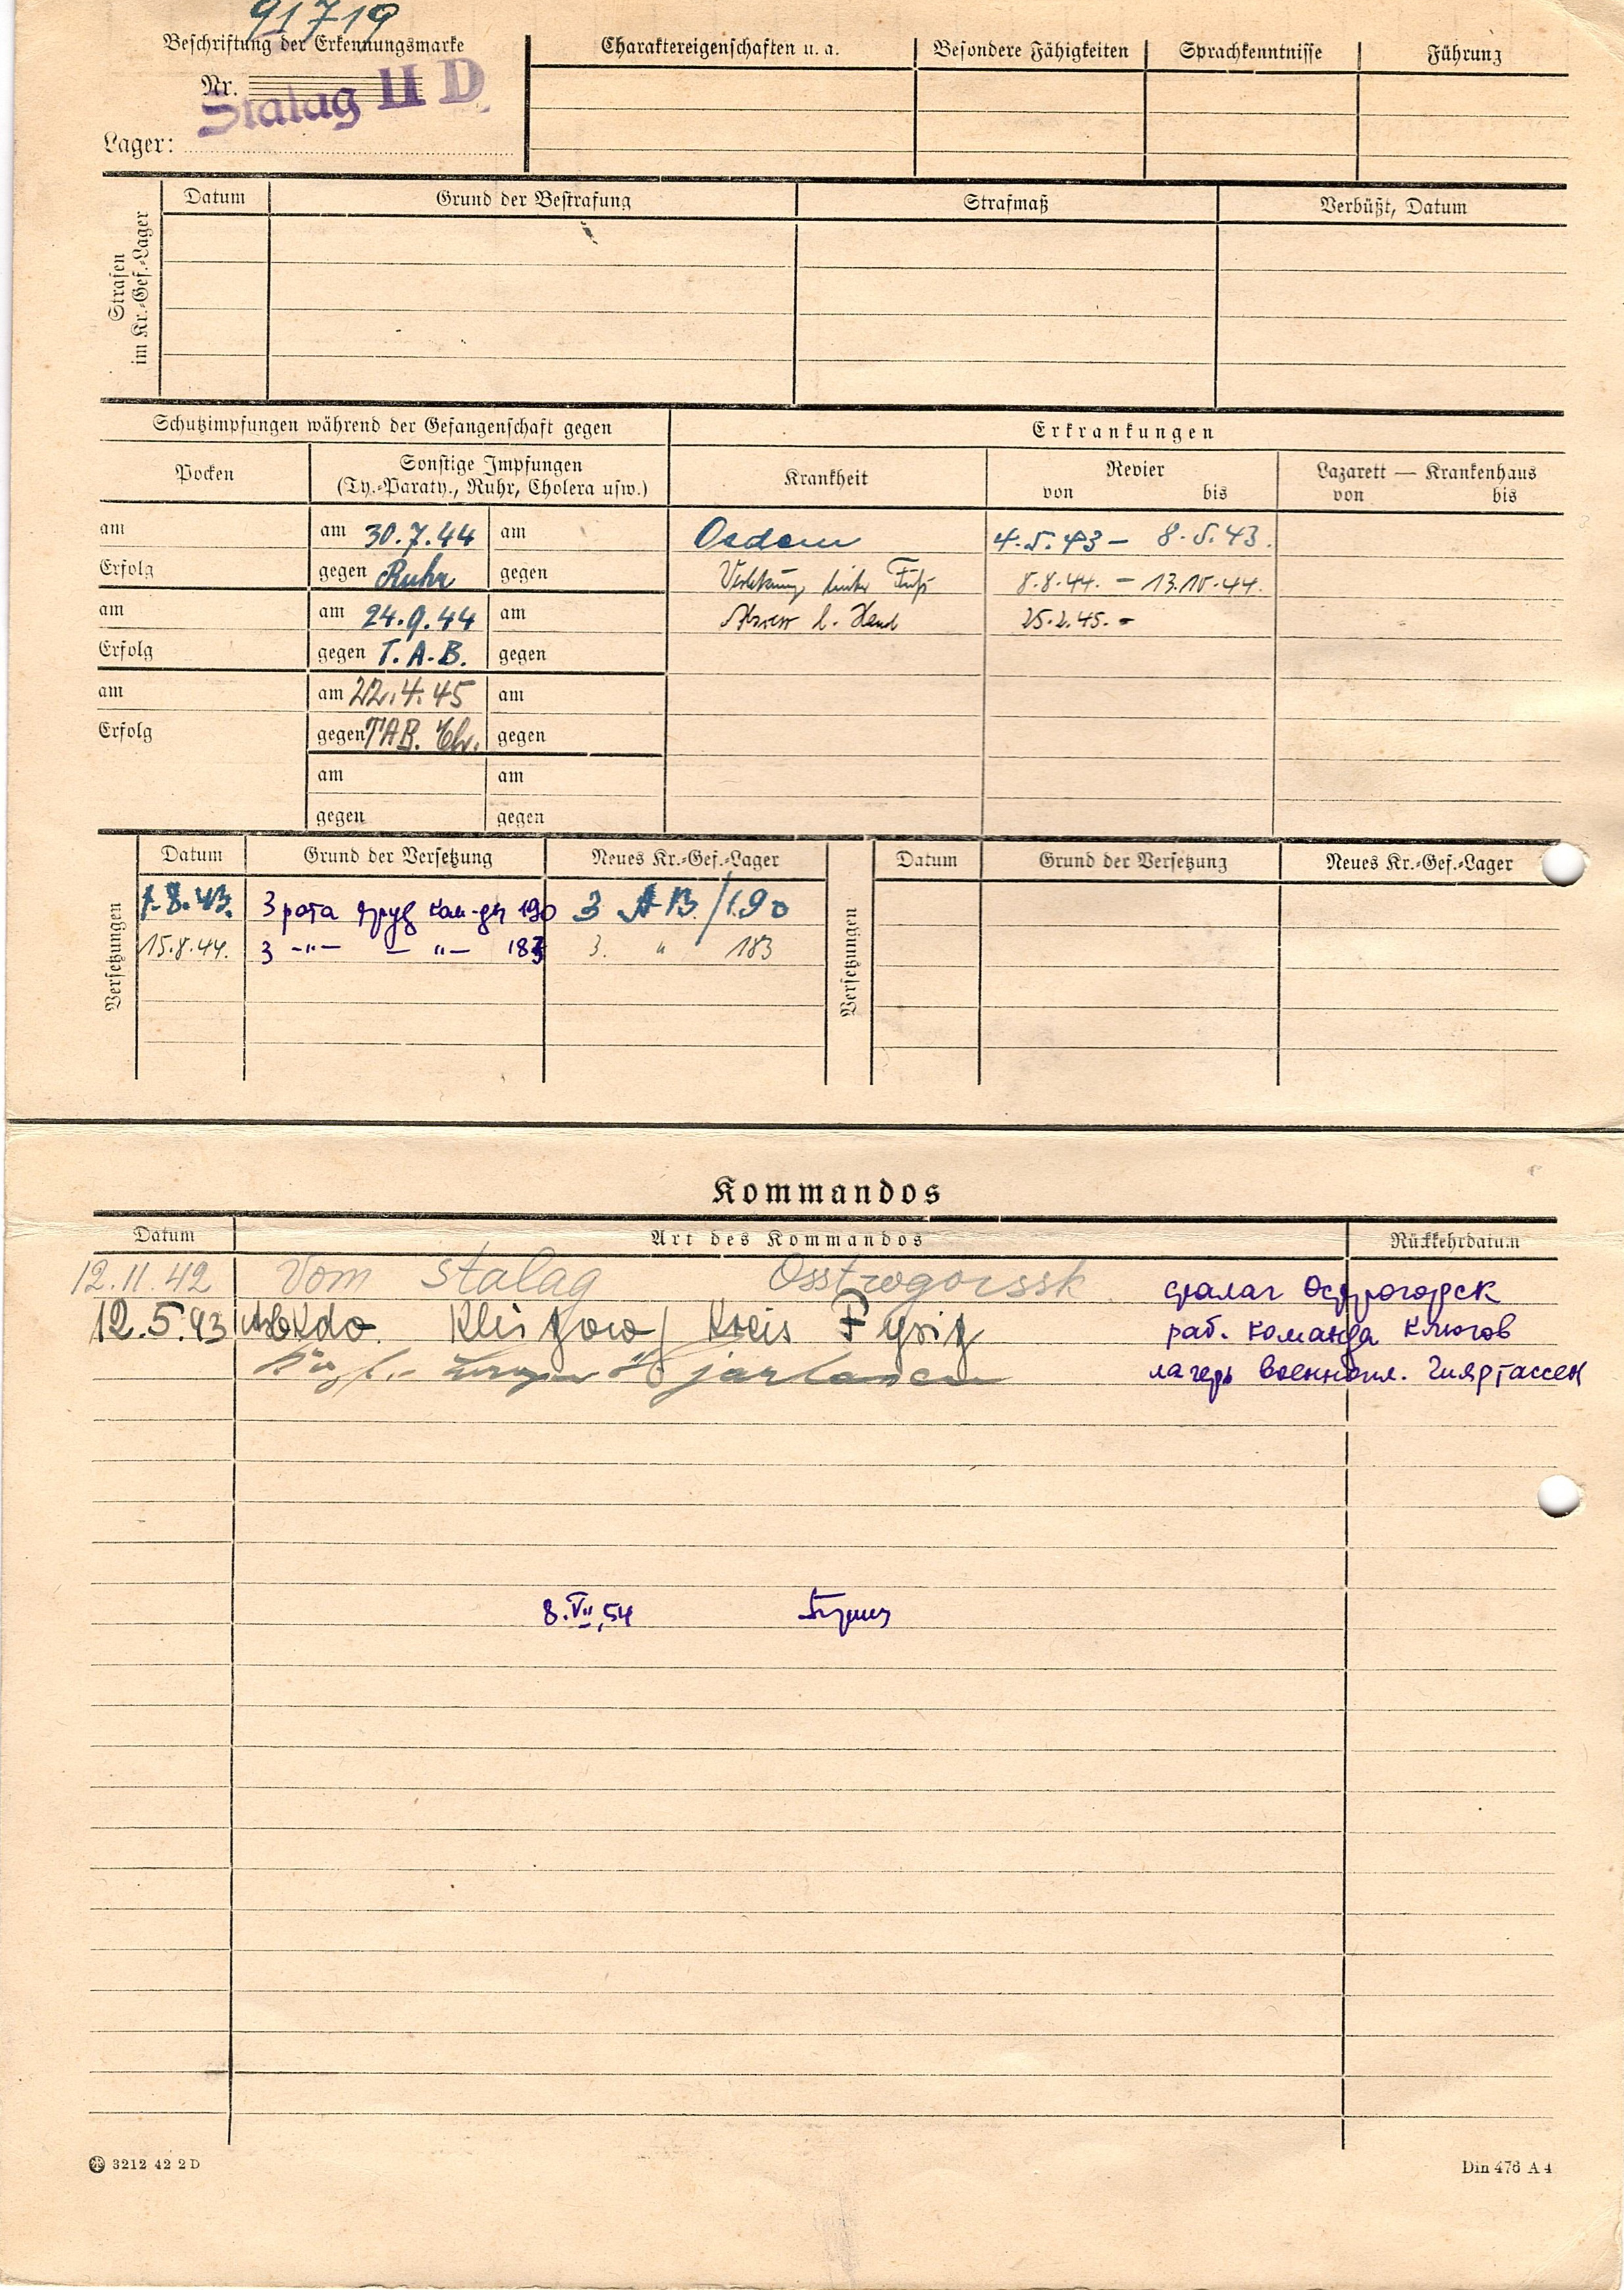 91719
Beschriftung der Erkennungsmarke
Nr.
Stalag II D
Lager:
Charaktereigenschaften u. a. Besondere Fähigkeiten Sprachkenntnisse Führung
Strafen im Kr.-Gef.-Lager
Datum Grund der Bestrafung Strafmaß Verbüßt, Datum
Schutzimpfungen während der Gefangenschaft gegen Erkrankungen
Pocken Sonstige Impfungen Krankheit Revier Lazarett — Krankenhaus
(Ty.-Paraty., Ruhr, Cholera usw.) von bis von bis
am am 30.7.44 am Oedem 4.5.43 – 8.5.43.
Erfolg gegen Ruhr gegen Verletzung linker Fuß 8.8.44. – 13.10.44.
am am 24.9.44 am l. Hand 25.2.45. –
Erfolg gegen T.A.B. gegen
am am 22.4.45 am
Erfolg gegen TAB. gegen
am am
gegen gegen
Versetzungen
Datum Grund der Versetzung Neues Kr.-Gef.-Lager
1.8.43. 3 рота труд ком-ды 190 3 AB/190
15.8.44. 3 -"- - "- 183 3. " 183
Versetzungen
Datum Grund der Versetzung Neues Kr.-Gef.-Lager
Kommandos
Datum Art des Kommandos Rückkehrdatum
12.11.42 Vom Stalag Osstrogorssk сталаг Острогорск
12.5.43 ArbKdo. Klützow/ Kreis Pyritz раб. команда Клюгов
лагерь военнопл.
8.VII.54
3212 42 2 D Din 476 A 4